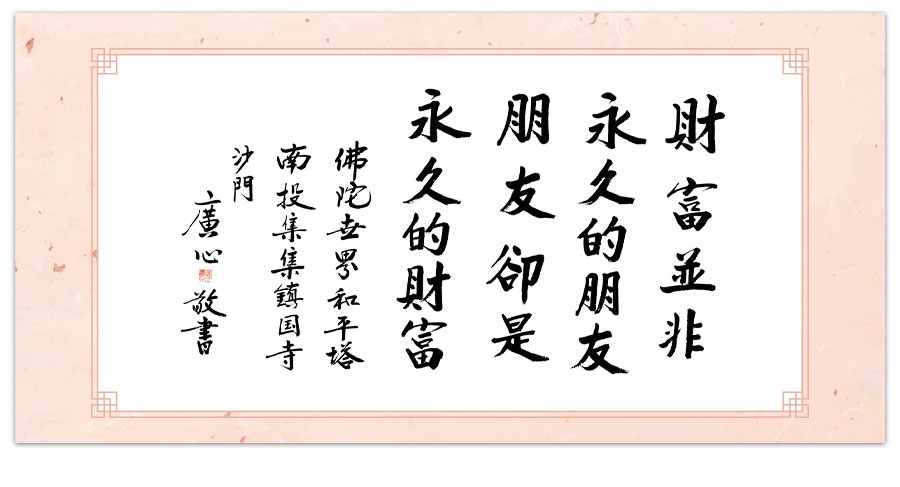 財富並非
永久的朋友
朋友卻是
永久的財富
佛陀世界和平塔
南投集集鎮国寺
沙門
廣心 敬書